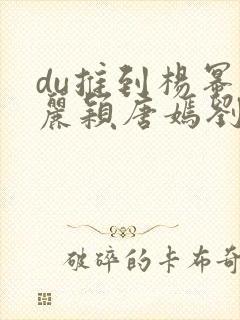 du推到杨幂
麗颖唐嫣劉
破碎的卡布奇